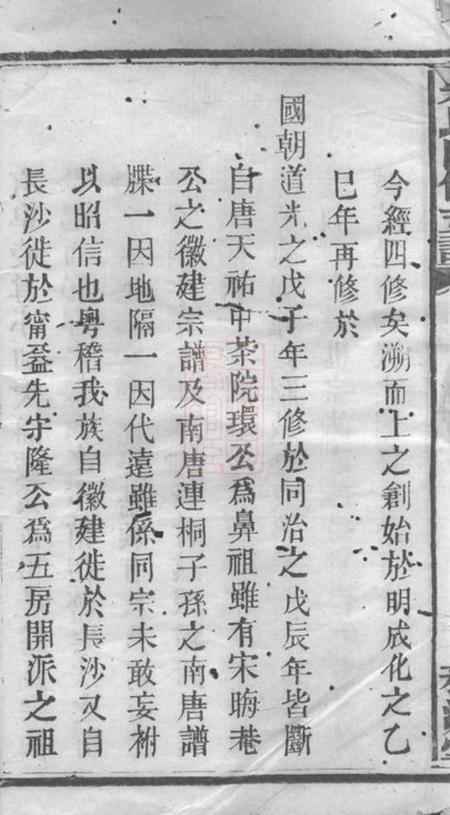 今經四修矣溯而上之創始於明成化之乙
巳年再修於
國朝道光之戊子年三修於同治之戊辰年皆斷
自唐天祐中茶院環公爲鼻祖雖有宋晦菴
公之徽建宗譜及南唐連桐子孫之南唐譜
牒一因地隔一因代遠雖係同宗未敢妄祔
以昭信也粵稽我族自徽建徙於長沙又自
長沙徙於甯益先守隆公爲五房開派之祖